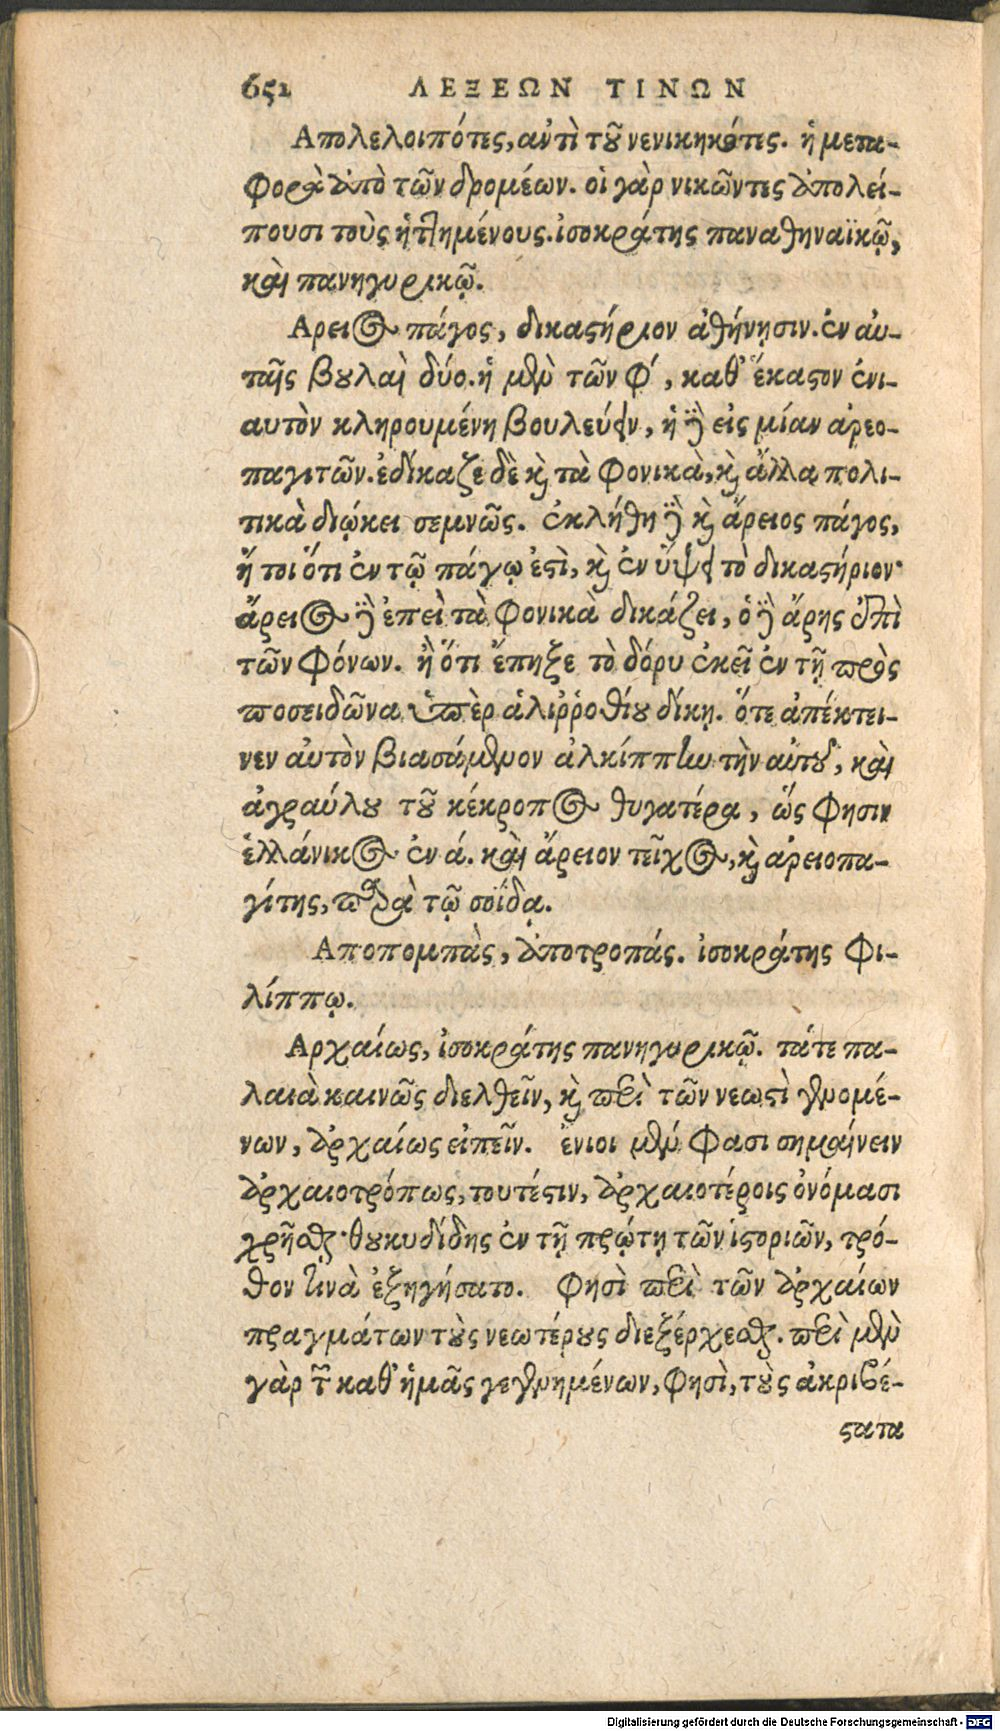 652 ΛΕΞΕΩΝ ΤΙΝΩΝ
Απολελοιπότες, αὐτὶ τοῦ νενικηκότες. ἡ μετα-
φορὰ ἀπὸ τῶν δρομέων. οἱ γὰρ νικῶντες ἀπολεί-
πουσι τοὺς ἡττημένους. ἰσοκράτης παναθηναϊκῷ,
καὶ πανηγυρικῷ.
Αρειος πάγος, δικαστήριον ἀθήνησιν. ἐν αὐ-
ταῖς βουλαὶ δύο. ἡ μὲν τῶν φʹ, καθ᾽ ἕκαστον ἐνι-
αυτὸν κληρουμένη βουλεύειν, ἡ δὲ εἰς μίαν ἀρεο-
παγιτῶν. ἐδίκαζε δὲ καὶ τὰ φονικὰ, καὶ ἄλλα πολι-
τικὰ διῴκει σεμνῶς. ἐκλήθη δὲ καὶ ἄρειος πάγος,
ἤ τοι ὅτι ἐν τῷ πάγῳ ἐστὶ, καὶ ἐν ὕψει τὸ δικαστήριον·
ἄρειος δὲ ἐπεὶ τὰ φονικὰ δικάζει, ὁ δὲ ἄρης ἐπὶ
τῶν φόνων. ἢ ὅτι ἔπηξε τὸ δόρυ ἐκεῖ ἐν τῇ πρὸς
ποσειδῶνα ὑπὲρ ἁλιῤῥοθίου δίκῃ. ὅτε ἀπέκτει-
νεν αὐτὸν βιασάμενον ἀλκίππην τὴν αὑτοῦ, καὶ
ἀγραύλου τοῦ κέκροπος θυγατέρα, ὥς φησιν
ἑλλάνικος ἐν ά. καὶ ἄρειον τεῖχος, καὶ ἀρειοπα-
γίτης, παρὰ τῷ σοΐδᾳ.
Αποπομπὰς, ἀποτροπάς. ἰσοκράτης φι-
λίππῳ.
Αρχαίως, ἰσοκράτης πανηγυρικῷ. τά τε πα-
λαιὰ καινῶς διελθεῖν, καὶ περὶ τῶν νεωστὶ γενομέ-
νων, ἀρχαίως εἰπεῖν. ἔνιοι μέν φασι σημαίνειν
ἀρχαιοτρόπως, τουτέστιν, ἀρχαιοτέροις ὀνόμασι
χρῆσθαι· θουκυδίδης ἐν τῇ πρώτῃ τῶν ἱστοριῶν, τρό-
πον τινὰ ἐξηγήσατο. φησὶ περὶ τῶν ἀρχαίων
πραγμάτων τοὺς νεωτέρους διεξέρχεσθαι. περὶ μὲν
γὰρ τῶν καθ᾽ ἡμᾶς γεγενημένων, φησὶ, τοὺς ἀκριβέ-
στατα